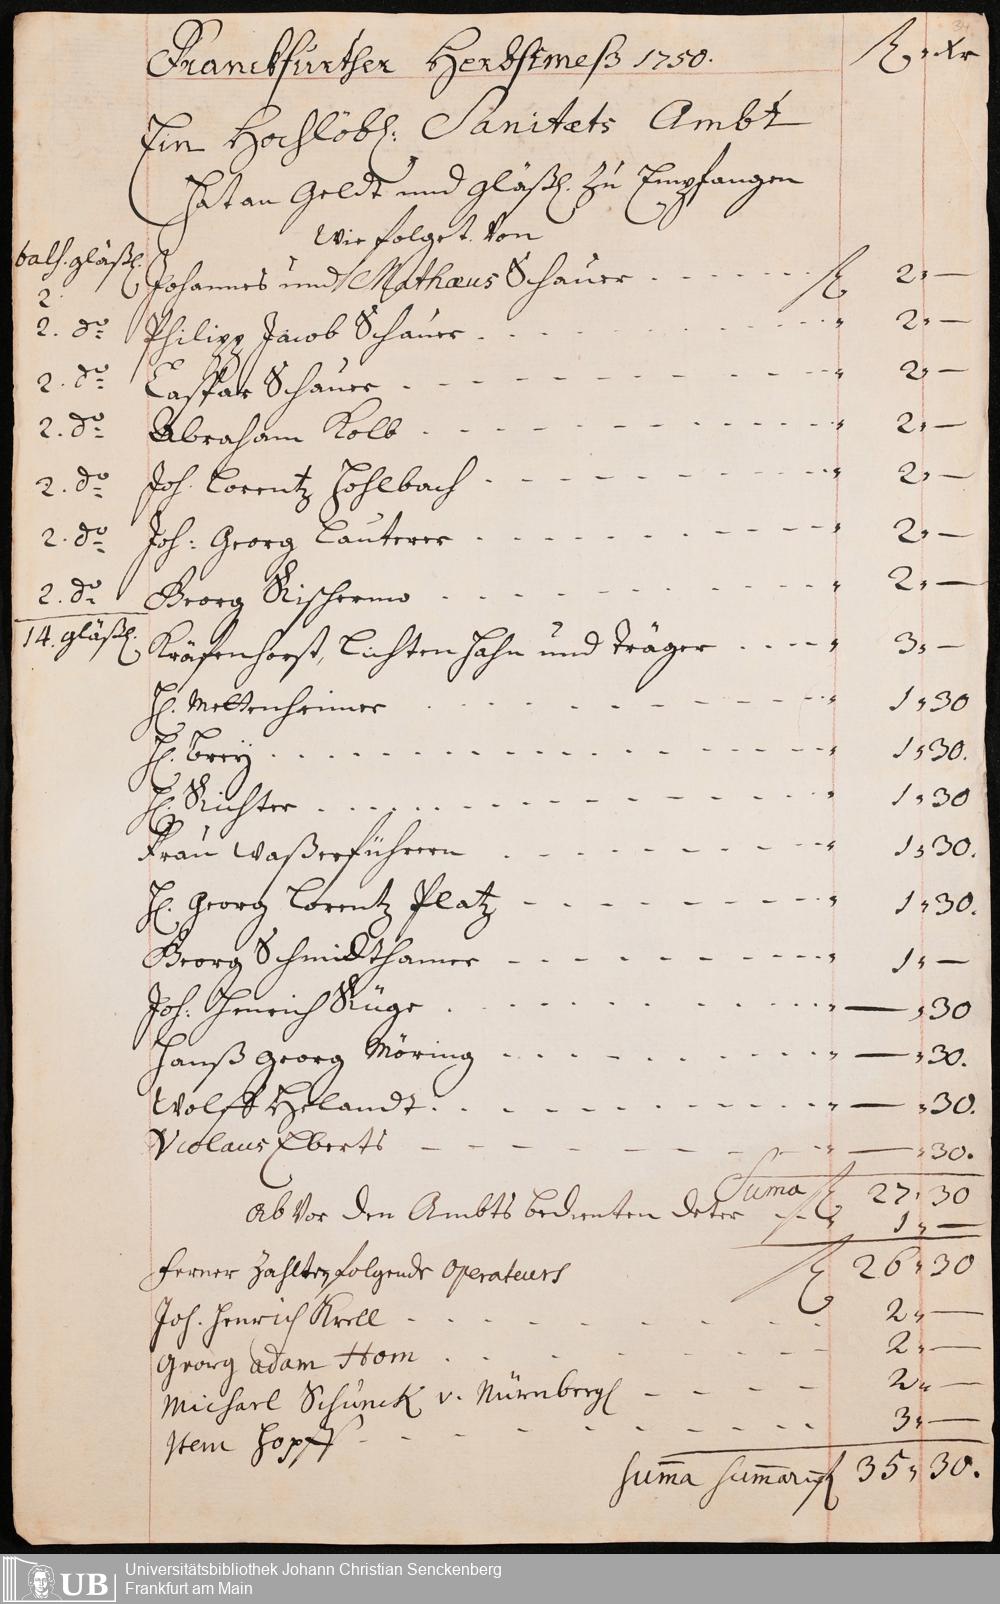 Franckfurther Herbstmeß 1750. fl „ Xr
Ein Hochlöbl: Sanitæts Ambt
Hat an Geldt und gläßl. zu Empfangen
wie folget. Von
bals. gläßl.
2. Johannes und Mathæus Schauer - - - fl 2„ —
2. do Philipp Jacob Schauer - - - „ 2„ —
2. do Caspar Schauer - - - „ 2„ —
2. do Abraham Kolb - - - „ 2„ —
2. do Joh. Lorentz Hohlbach - - - „ 2„ —
2. do Joh: Georg Lauterer - - - „ 2„ —
2. do Georg - - - „ 2„ —
14. gläßl. Kräfenhorst, Lichtenhahn und Träger - - - „ 3„ —
H. Mettenheimer - - - „ 1„30
H. Brey - - - „ 1„30.
H. Richter - - - „ 1„30
Frau Waßerführern - - - „ 1„30.
H. Georg Lorentz Platz - - - „ 1„30.
Georg Schmidthamer - - - „ 1„ —
Joh: Henrich Rüge - - - „ — „30
Hanß Georg Möring - - - „ — „30.
Wolff Helandt - - - „ — „30.
Nicolaus Eberts - - - „ — „30.
Suma fl 27„30
ab vor den Ambts bedienten - - - „ 1„ —
fl 26„30
ferner zahlten folgende Operateurs
Joh. Henrich Krell - - - 2„ —
Georg adam Hom - - - 2„ —
Michael Schunck v. Nürnberg - - - 2„ —
Item Hopff - - - 3„ —
Suma Sumarum fl 35„30.
Universitätsbibliothek Johann Christian Senckenberg
Frankfurt am Main
UB